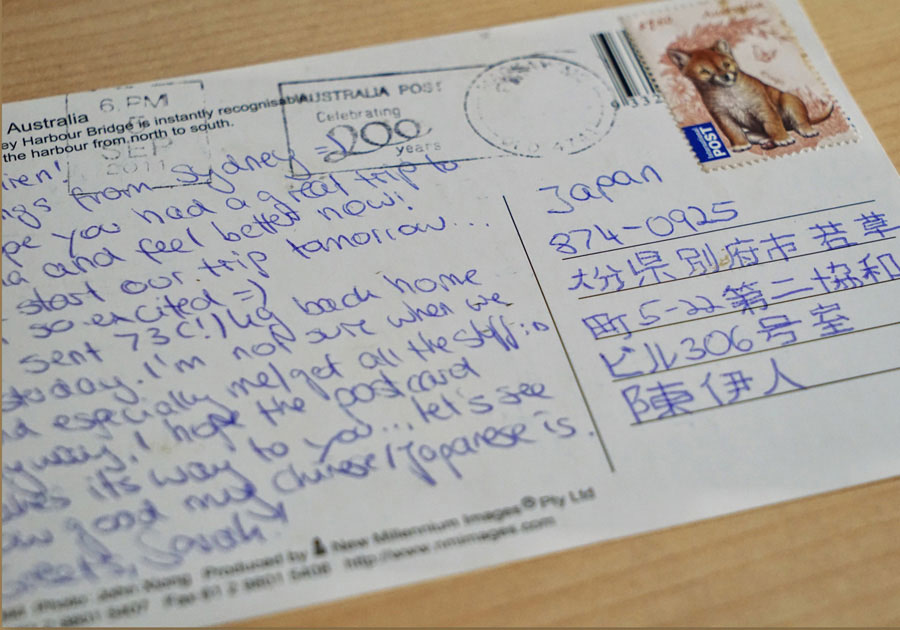 Australia
ey Harbour Bridge is instantly recognisabl
the harbour from north to south.
6 PM
SEP
2011
AUSTRALIA POST
Celebrating
200
years
9332
Australia
International
POST
ngs from Sydney =)
pe you had a great trip to
and feel better now!
start our trip tomorrow...
so excited =)
sent 73(!)kg back home
today. I'm not sure when we
nd especially me/get all the stuff in
yway, I hope the postcard
kes it's way to you... let's see
ow good my Chinese/Japanese is.
Sarah
Japan
874-0925
大分県別府市若草
町5-22第二協和
ビル306号室
陳伊人
Produced by New Millennium Images® Pty Ltd
http://www.nmimages.com